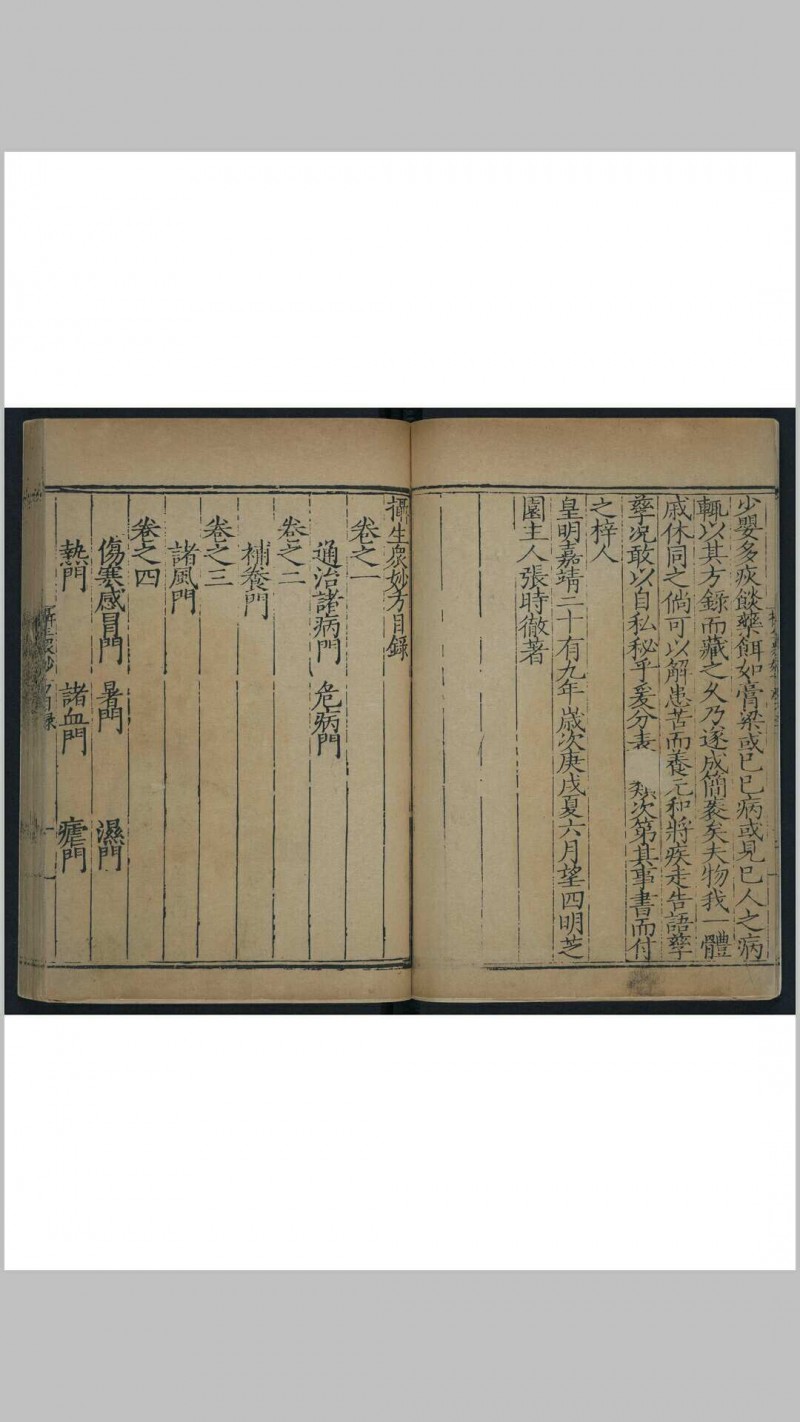 少嬰多疾餤藥餌如膏粱或已已病或見已人之病
輒以其方錄而藏之久乃遂成簡袠矣夫物我一體
戚休同之倘可以解患苦而養元和將疾走告語孳
孳况敢以自私秘乎爰分表 類次第其事書而付
之梓人
皇明嘉靖二十有九年歲次庚戌夏六月望四明芝
園主人張時徹著
攝生眾妙方目錄
卷之一
通治諸病門 危病門
卷之二
補養門
卷之三
諸風門
卷之四
傷寒感冒門 暑門 濕門
熱門 諸血門 瘧門